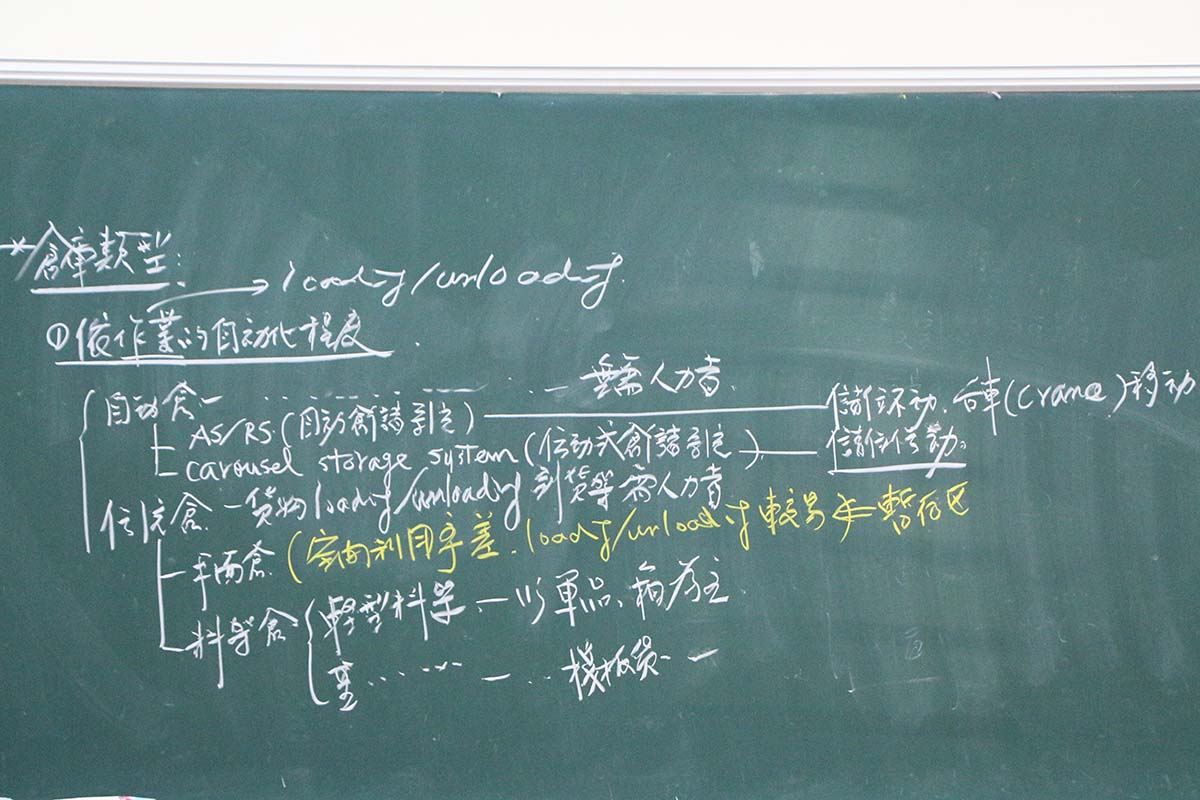 *倉庫類型:
→ loading/unloading.
①依作業的自动化程度.
自动倉 — ........... — 無需人力者.
AS/RS.(自动倉儲系統) — 儲位不动、台車(Crane)移动
carousel storage system (旋动式倉儲系統) — 儲位移動。
傳統倉 — 貨物loading/unloading到貨架需人力者
平面倉 (空間利用率差.loading/unloading較易 ← 暫存区
料架倉 輕型料架 — 以單品、箱為主
重...... — .. 棧板貨 .. —